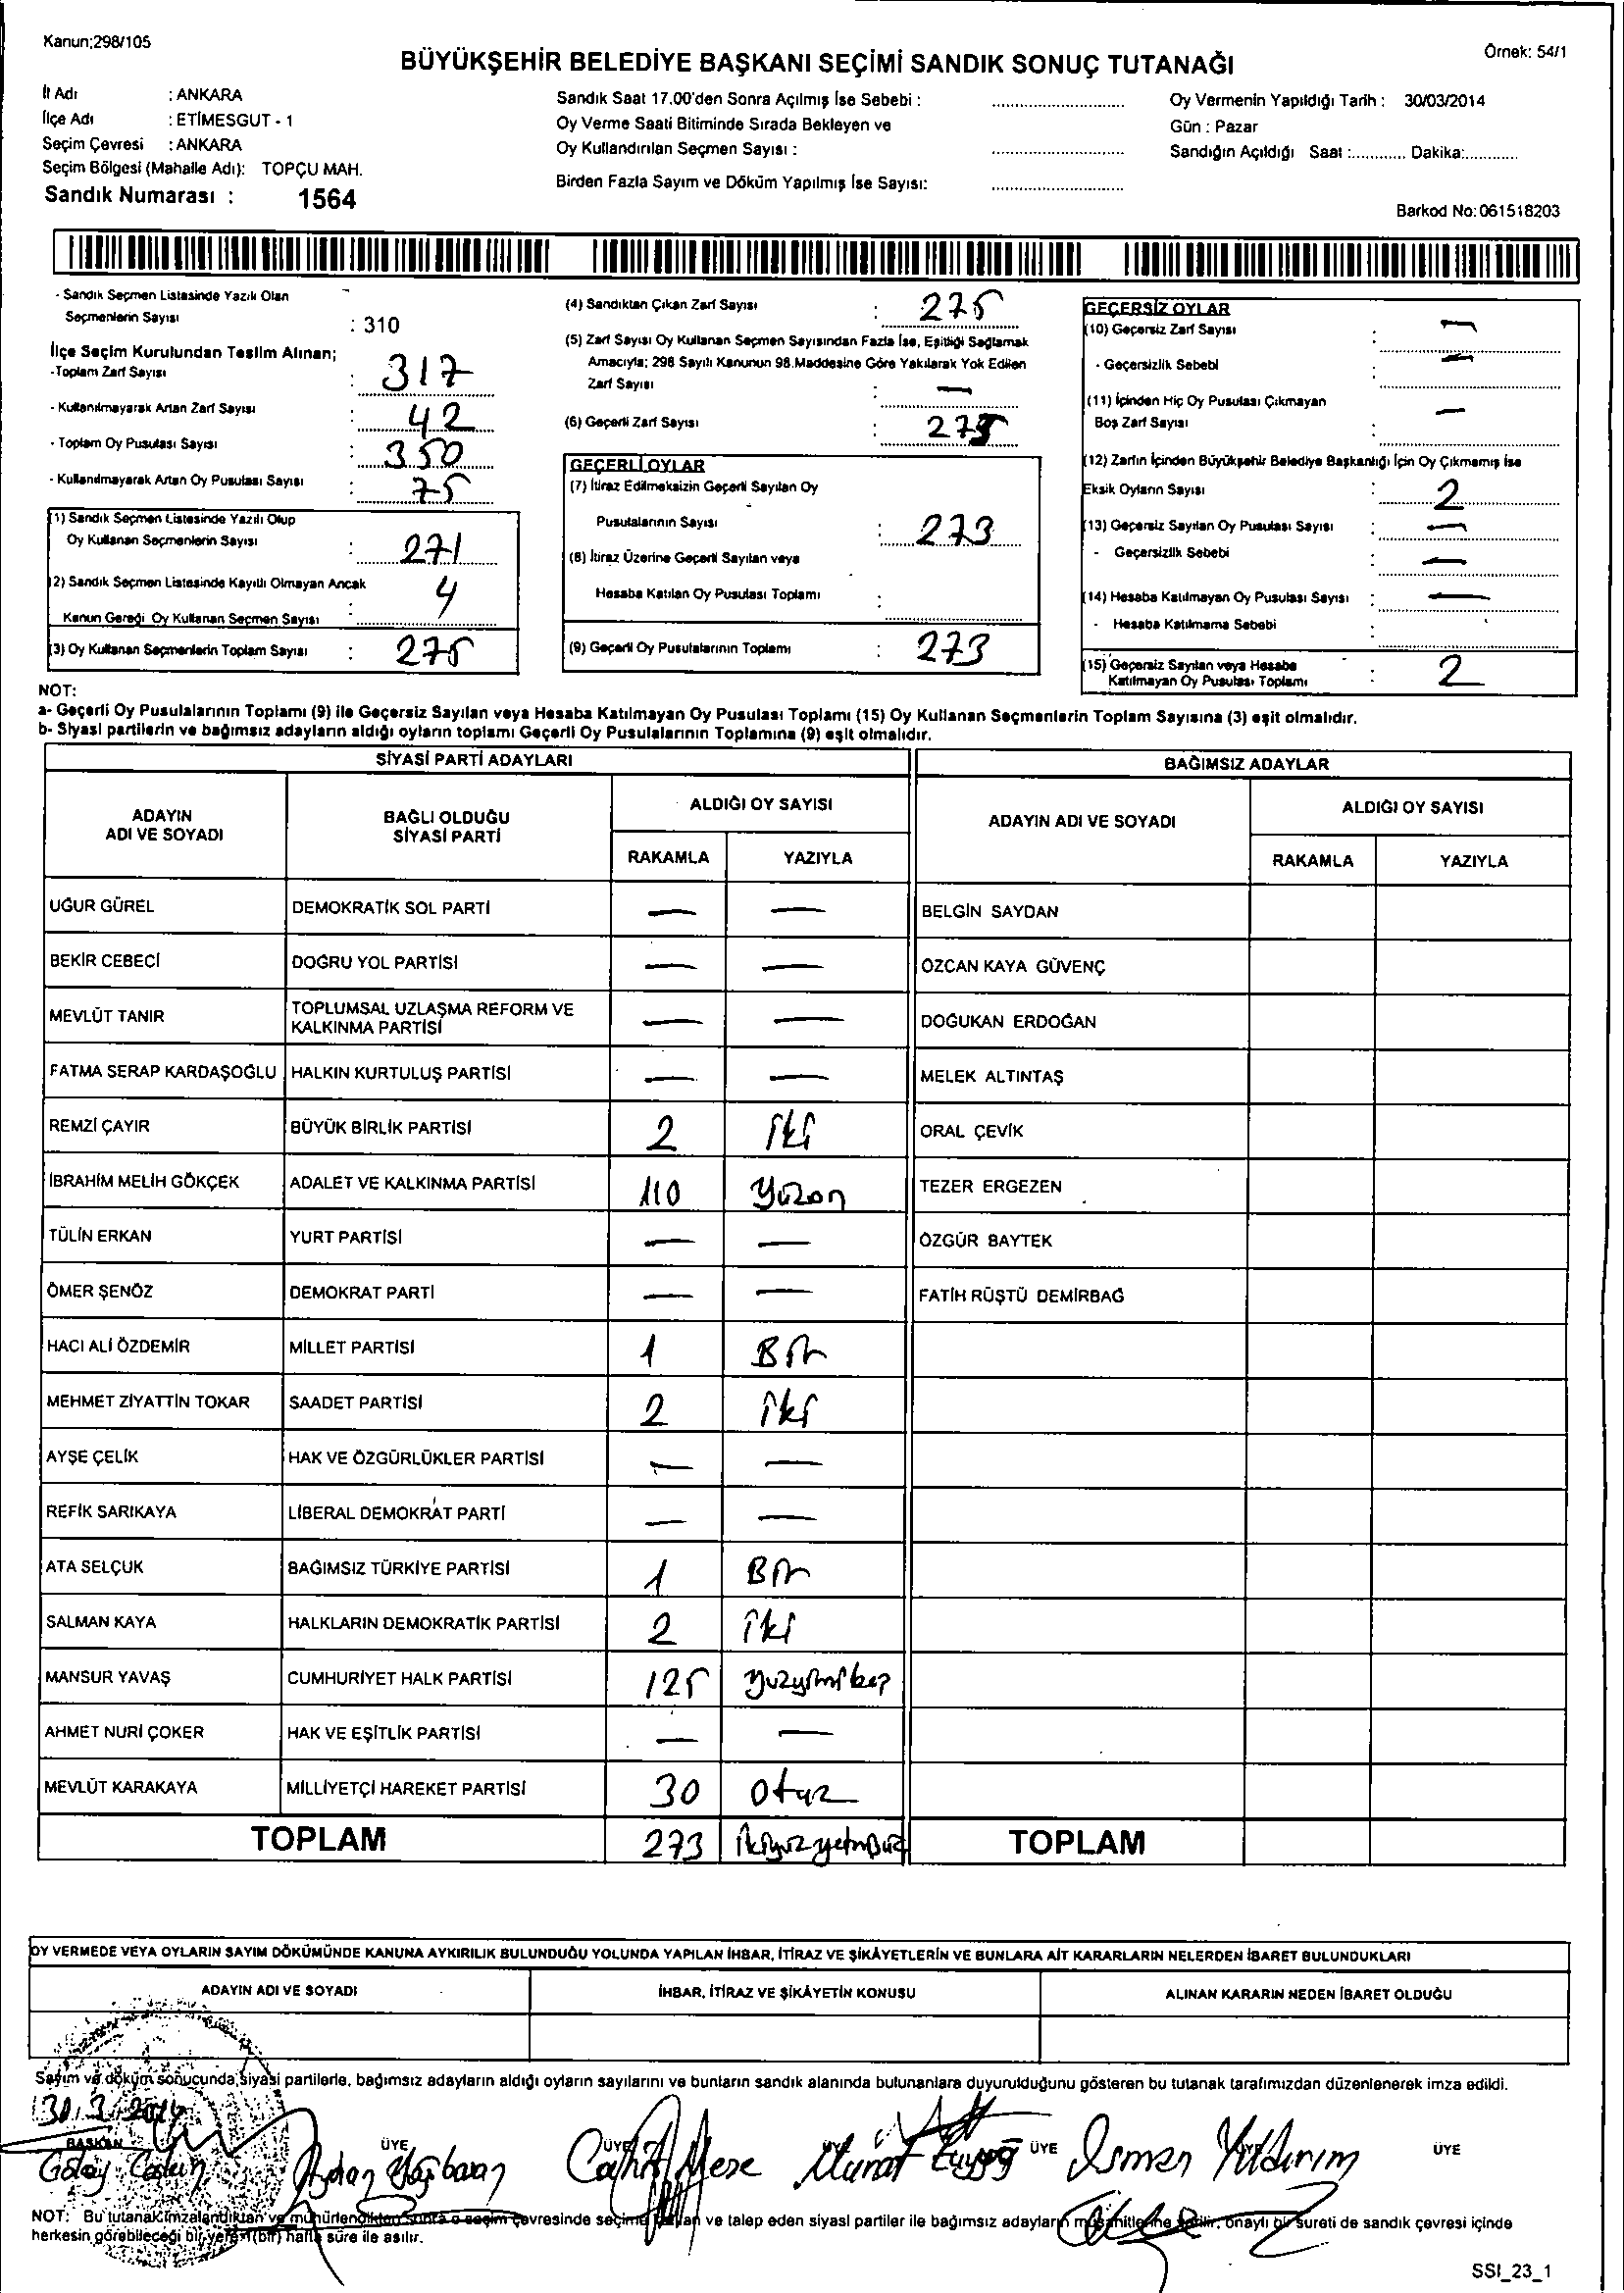 Kanun;298/105
Örnek: 54/1
BÜYÜKŞEHİR BELEDİYE BAŞKANI SEÇİMİ SANDIK SONUÇ TUTANAĞI
İl Adı : ANKARA
İlçe Adı : ETİMESGUT - 1
Seçim Çevresi : ANKARA
Seçim Bölgesi (Mahalle Adı): TOPÇU MAH.
Sandık Numarası : 1564
Sandık Saat 17.00'den Sonra Açılmış İse Sebebi :
Oy Verme Saati Bitiminde Sırada Bekleyen ve
Oy Kullandırılan Seçmen Sayısı :
Birden Fazla Sayım ve Döküm Yapılmış İse Sayısı:
Oy Vermenin Yapıldığı Tarih : 30/03/2014
Gün : Pazar
Sandığın Açıldığı Saat :............ Dakika:............
Barkod No:061518203
- Sandık Seçmen Listesinde Yazılı Olan
Seçmenlerin Sayısı : 310
İlçe Seçim Kurulundan Teslim Alınan;
-Toplam Zarf Sayısı : 317
- Kullanılmayarak Artan Zarf Sayısı : 42
- Toplam Oy Pusulası Sayısı : 350
- Kullanılmayarak Artan Oy Pusulası Sayısı : 75
(1) Sandık Seçmen Listesinde Yazılı Olup
Oy Kullanan Seçmenlerin Sayısı : 271
(2) Sandık Seçmen Listesinde Kayıtlı Olmayan Ancak
Kanun Gereği Oy Kullanan Seçmen Sayısı : 4
(3) Oy Kullanan Seçmenlerin Toplam Sayısı : 275
(4) Sandıktan Çıkan Zarf Sayısı : 275
(5) Zarf Sayısı Oy Kullanan Seçmen Sayısından Fazla İse, Eşitliği Sağlamak
Amacıyla; 298 Sayılı Kanunun 98.Maddesine Göre Yakılarak Yok Edilen
Zarf Sayısı : —
(6) Geçerli Zarf Sayısı : 275
GEÇERLİ OYLAR
(7) İtiraz Edilmeksizin Geçerli Sayılan Oy
Pusulalarının Sayısı : 273
(8) İtiraz Üzerine Geçerli Sayılan veya
Hesaba Katılan Oy Pusulası Toplamı :
(9) Geçerli Oy Pusulalarının Toplamı : 273
GEÇERSİZ OYLAR
(10) Geçersiz Zarf Sayısı : —
- Geçersizlik Sebebi : —
(11) İçinden Hiç Oy Pusulası Çıkmayan
Boş Zarf Sayısı : —
(12) Zarfın İçinden Büyükşehir Belediye Başkanlığı İçin Oy Çıkmamış İse
Eksik Oyların Sayısı : 2
(13) Geçersiz Sayılan Oy Pusulası Sayısı : —
- Geçersizlik Sebebi : —
(14) Hesaba Katılmayan Oy Pusulası Sayısı : —
- Hesaba Katılmama Sebebi :
(15) Geçersiz Sayılan veya Hesaba
Katılmayan Oy Pusulası Toplamı : 2
NOT:
a- Geçerli Oy Pusulalarının Toplamı (9) ile Geçersiz Sayılan veya Hesaba Katılmayan Oy Pusulası Toplamı (15) Oy Kullanan Seçmenlerin Toplam Sayısına (3) eşit olmalıdır.
b- Siyasi partilerin ve bağımsız adayların aldığı oyların toplamı Geçerli Oy Pusulalarının Toplamına (9) eşit olmalıdır.
SİYASİ PARTİ ADAYLARI
BAĞIMSIZ ADAYLAR
ADAYIN ADI VE SOYADI
BAĞLI OLDUĞU SİYASİ PARTİ
ALDIĞI OY SAYISI
RAKAMLA YAZIYLA
ADAYIN ADI VE SOYADI
ALDIĞI OY SAYISI
RAKAMLA YAZIYLA
UĞUR GÜREL DEMOKRATİK SOL PARTİ — — BELGİN SAYDAN
BEKİR CEBECİ DOĞRU YOL PARTİSİ — — ÖZCAN KAYA GÜVENÇ
MEVLÜT TANIR TOPLUMSAL UZLAŞMA REFORM VE KALKINMA PARTİSİ — — DOĞUKAN ERDOĞAN
FATMA SERAP KARDAŞOĞLU HALKIN KURTULUŞ PARTİSİ — — MELEK ALTINTAŞ
REMZİ ÇAYIR BÜYÜK BİRLİK PARTİSİ 2 iki ORAL ÇEVİK
İBRAHİM MELİH GÖKÇEK ADALET VE KALKINMA PARTİSİ 110 yüzon TEZER ERGEZEN
TÜLİN ERKAN YURT PARTİSİ — — ÖZGÜR BAYTEK
ÖMER ŞENÖZ DEMOKRAT PARTİ — — FATİH RÜŞTÜ DEMİRBAĞ
HACI ALİ ÖZDEMİR MİLLET PARTİSİ 1 Bir
MEHMET ZİYATTİN TOKAR SAADET PARTİSİ 2 iki
AYŞE ÇELİK HAK VE ÖZGÜRLÜKLER PARTİSİ — —
REFİK SARIKAYA LİBERAL DEMOKRAT PARTİ — —
ATA SELÇUK BAĞIMSIZ TÜRKİYE PARTİSİ 1 Bir
SALMAN KAYA HALKLARIN DEMOKRATİK PARTİSİ 2 iki
MANSUR YAVAŞ CUMHURİYET HALK PARTİSİ 125 yuzyirmibeş
AHMET NURİ ÇOKER HAK VE EŞİTLİK PARTİSİ — —
MEVLÜT KARAKAYA MİLLİYETÇİ HAREKET PARTİSİ 30 otuz
TOPLAM 273 TOPLAM
OY VERMEDE VEYA OYLARIN SAYIM DÖKÜMÜNDE KANUNA AYKIRILIK BULUNDUĞU YOLUNDA YAPILAN İHBAR, İTİRAZ VE ŞİKÂYETLERİN VE BUNLARA AİT KARARLARIN NELERDEN İBARET BULUNDUKLARI
ADAYIN ADI VE SOYADI İHBAR, İTİRAZ VE ŞİKÂYETİN KONUSU ALINAN KARARIN NEDEN İBARET OLDUĞU
Sayım ve döküm sonucunda siyasi partilerle, bağımsız adayların aldığı oyların sayılarını ve bunların sandık alanında bulunanlara duyurulduğunu gösteren bu tutanak tarafımızdan düzenlenerek imza edildi.
30.3.2014
BAŞKAN ÜYE ÜYE ÜYE ÜYE ÜYE
Murat Osman Yıldırım
NOT: Bu tutanak imzalandıktan ve mühürlendikten sonra o seçim çevresinde seçime katılan ve talep eden siyasi partiler ile bağımsız adayların müşahitlerine verilir, onaylı bir sureti de sandık çevresi içinde
herkesin görebileceği bir yere (bir) hafta süre ile asılır.
SSI_23_1